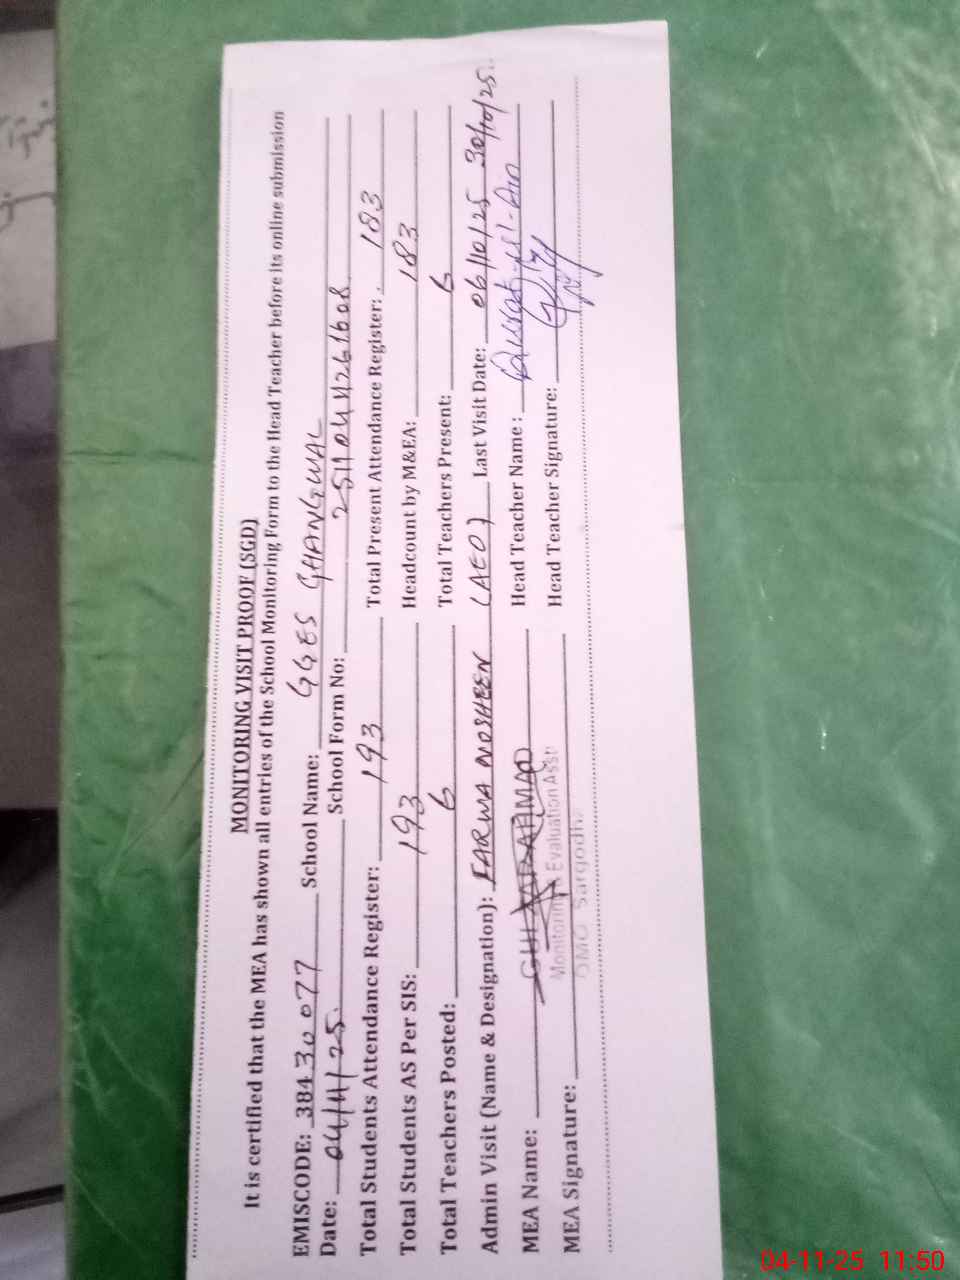 MONITORING VISIT PROOF (SGD)
It is certified that the MEA has shown all entries of the School Monitoring Form to the Head Teacher before its online submission
EMISCODE: 38430077 School Name: GGES GHANGWAL
Date: 04/11/25 School Form No:
Total Students Attendance Register: 193 Total Present Attendance Register: 183
Total Students AS Per SIS: 193 Headcount by M&EA: 183
Total Teachers Posted: 6 Total Teachers Present: 6
Admin Visit (Name & Designation): FARWA NOSHEEN (AEO) Last Visit Date: 06/10/25 30/10/25
MEA Name: Head Teacher Name :
Monitoring & Evaluation Asst
MEA Signature: Head Teacher Signature:
DMO Sargodha
04-11-25 11:50